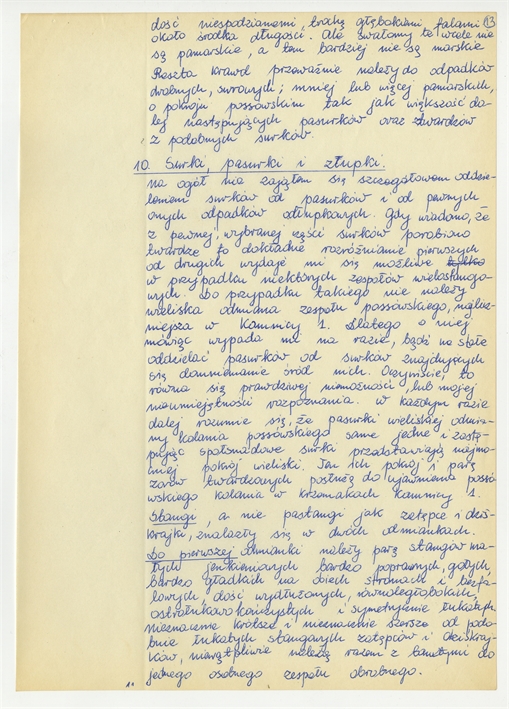 dość niespodzianemi, trochę głębokiemi falami 13
około środka długości. Ale swałamy te wcale nie
są pamarskie, a tem bardziej nie są marskie
Reszta krawal przeważnie należy do odpadków
drobnych, surowych; mniej lub więcej pamarskich,
o pokroju possowskim tak jak większość da-
lej następujących pasurków oraz twardziów
z podobnych surków.
10. Surki, pasurki i złupki.
Na ogół nie zająłem się szczegółowem oddzie-
leniem surków od pasurków i od pewnych
onych odpadków odłupkowych. Gdy wiadomo, że
z pewnej, wybranej części surków porobiono
twardzce to dokładne rozróżnianie pierwszych
od drugich wydaje mi się możliwe tylko
w przypadku niektórych zespołów wielosłango-
wych. Do przypadku takiego nie należy
wieliska odmiana zespołu possowskiego, najlicz-
niejsza w Kamnicy 1. Dlatego o niej
mówiąc wypada mi na razie, bądź na stałe
oddzielać pasurków od surków znajdujących
się domniemanie śród nich. Oczywiście, to
równa się prawdziwej niemożności, lub mojej
nieumiejętności rozpoznania. W każdym razie
dalej rozumie się, że pasurki wieliskiej odmia-
ny kolania possówskiego same jedne i zastę-
pując społsnadowe surki przedstawiają najmo-
niej pokrój wieliski. Ten ich pokrój i parę
zaraz twardzcowych postużą do ujawnienia possó-
wskiego kolania w krzemakach Kamnicy 1.
Stangi, a nie pastangi jak zatępce i dzis-
krajki, znalazły się w dwóch odmiankach.
Do pierwszej odmianki należy parę stangów ma-
łych jenkieniowych bardzo poprawnych, gołych
bardzo gładkich na obiech stronach i bezfa-
lowych, dość wydłużonych, równoległobokich,
ostrołukowokończystych i symetrycznie łukatych
nieznacznie krótsze i nieznacznie szersze od podo-
bnie łukatych stangowych zatępców i dziskraj-
ków, niewątpliwie należą razem z banetymi do
jednego osobnego zespołu obrobnego.